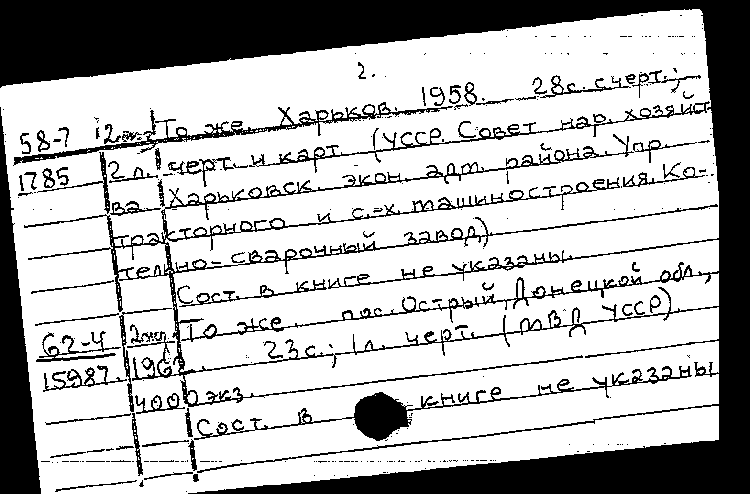 2.
58-7 2экз То же. Харьков. 1958. 28с. с черт.;
1785 2 л. черт. и карт. (УССР. Совет нар. хозяйст-
ва Харьковск. экон. адм. района. Упр.
тракторного и с.-х. машиностроения. Ко-
тельно-сварочный завод)
Сост. в книге не указаны.
62-4 2экз. То же. пос. Острый, Донецкой обл.,
15987. 1962. 23с.; 1л. черт. (МВД УССР).
4000 экз.
Сост. в книге не указаны